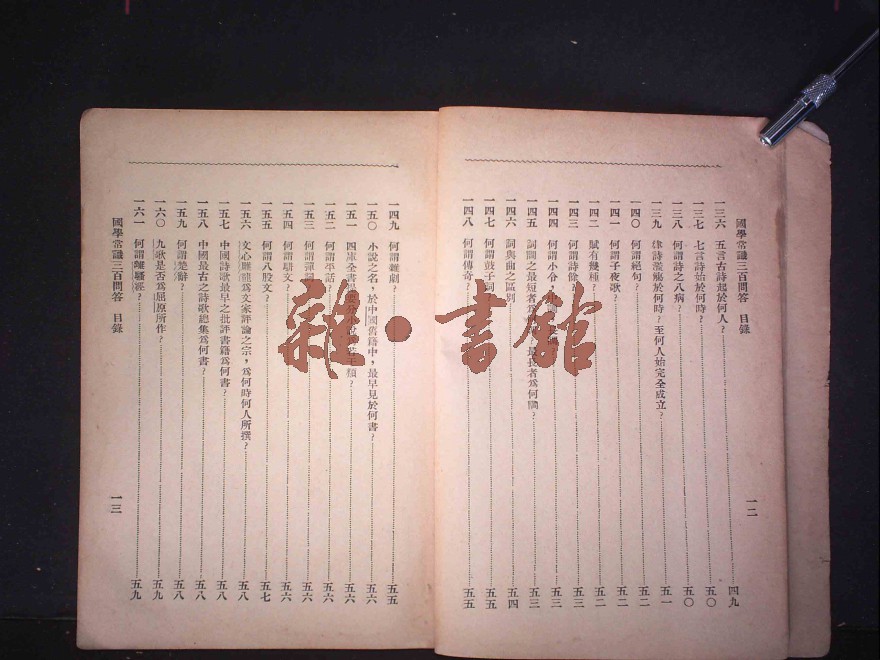 國學常識三百問答 目錄
一二
一三六 五言古詩起於何人？ 四九
一三七 七言詩始於何時？ 五〇
一三八 何謂詩之八病？ 五〇
一三九 律詩濫觴於何時？至何人始完全成立？ 五一
一四〇 何謂絕句？ 五二
一四一 何謂子夜歌？ 五二
一四二 賦有幾種？ 五二
一四三 何謂詩餘？ 五三
一四四 何謂小令， 五三
一四五 詞調之最短者為 最長者為何調？ 五三
一四六 詞與曲之區別 五四
一四七 何謂鼓子詞 五五
一四八 何謂傳奇？ 五五
一四九 何謂雜劇？ 五五
一五〇 小說之名，於中國舊籍中，最早見於何書？ 五六
一五一 四庫全書 類？ 五六
一五二 何謂平話？ 五六
一五三 何謂彈詞 五六
一五四 何謂駢文？ 五六
一五五 何謂八股文？ 五七
一五六 文心雕龍為文家評論之宗，為何時何人所撰？ 五八
一五七 中國詩歌最早之批評書籍為何書？ 五八
一五八 中國最古之詩歌總集為何書？ 五八
一五九 何謂楚辭？ 五八
一六〇 九歌是否為屈原所作？ 五九
一六一 何謂離騷經？ 五九
國學常識三百問答 目錄
一三
雜·書館